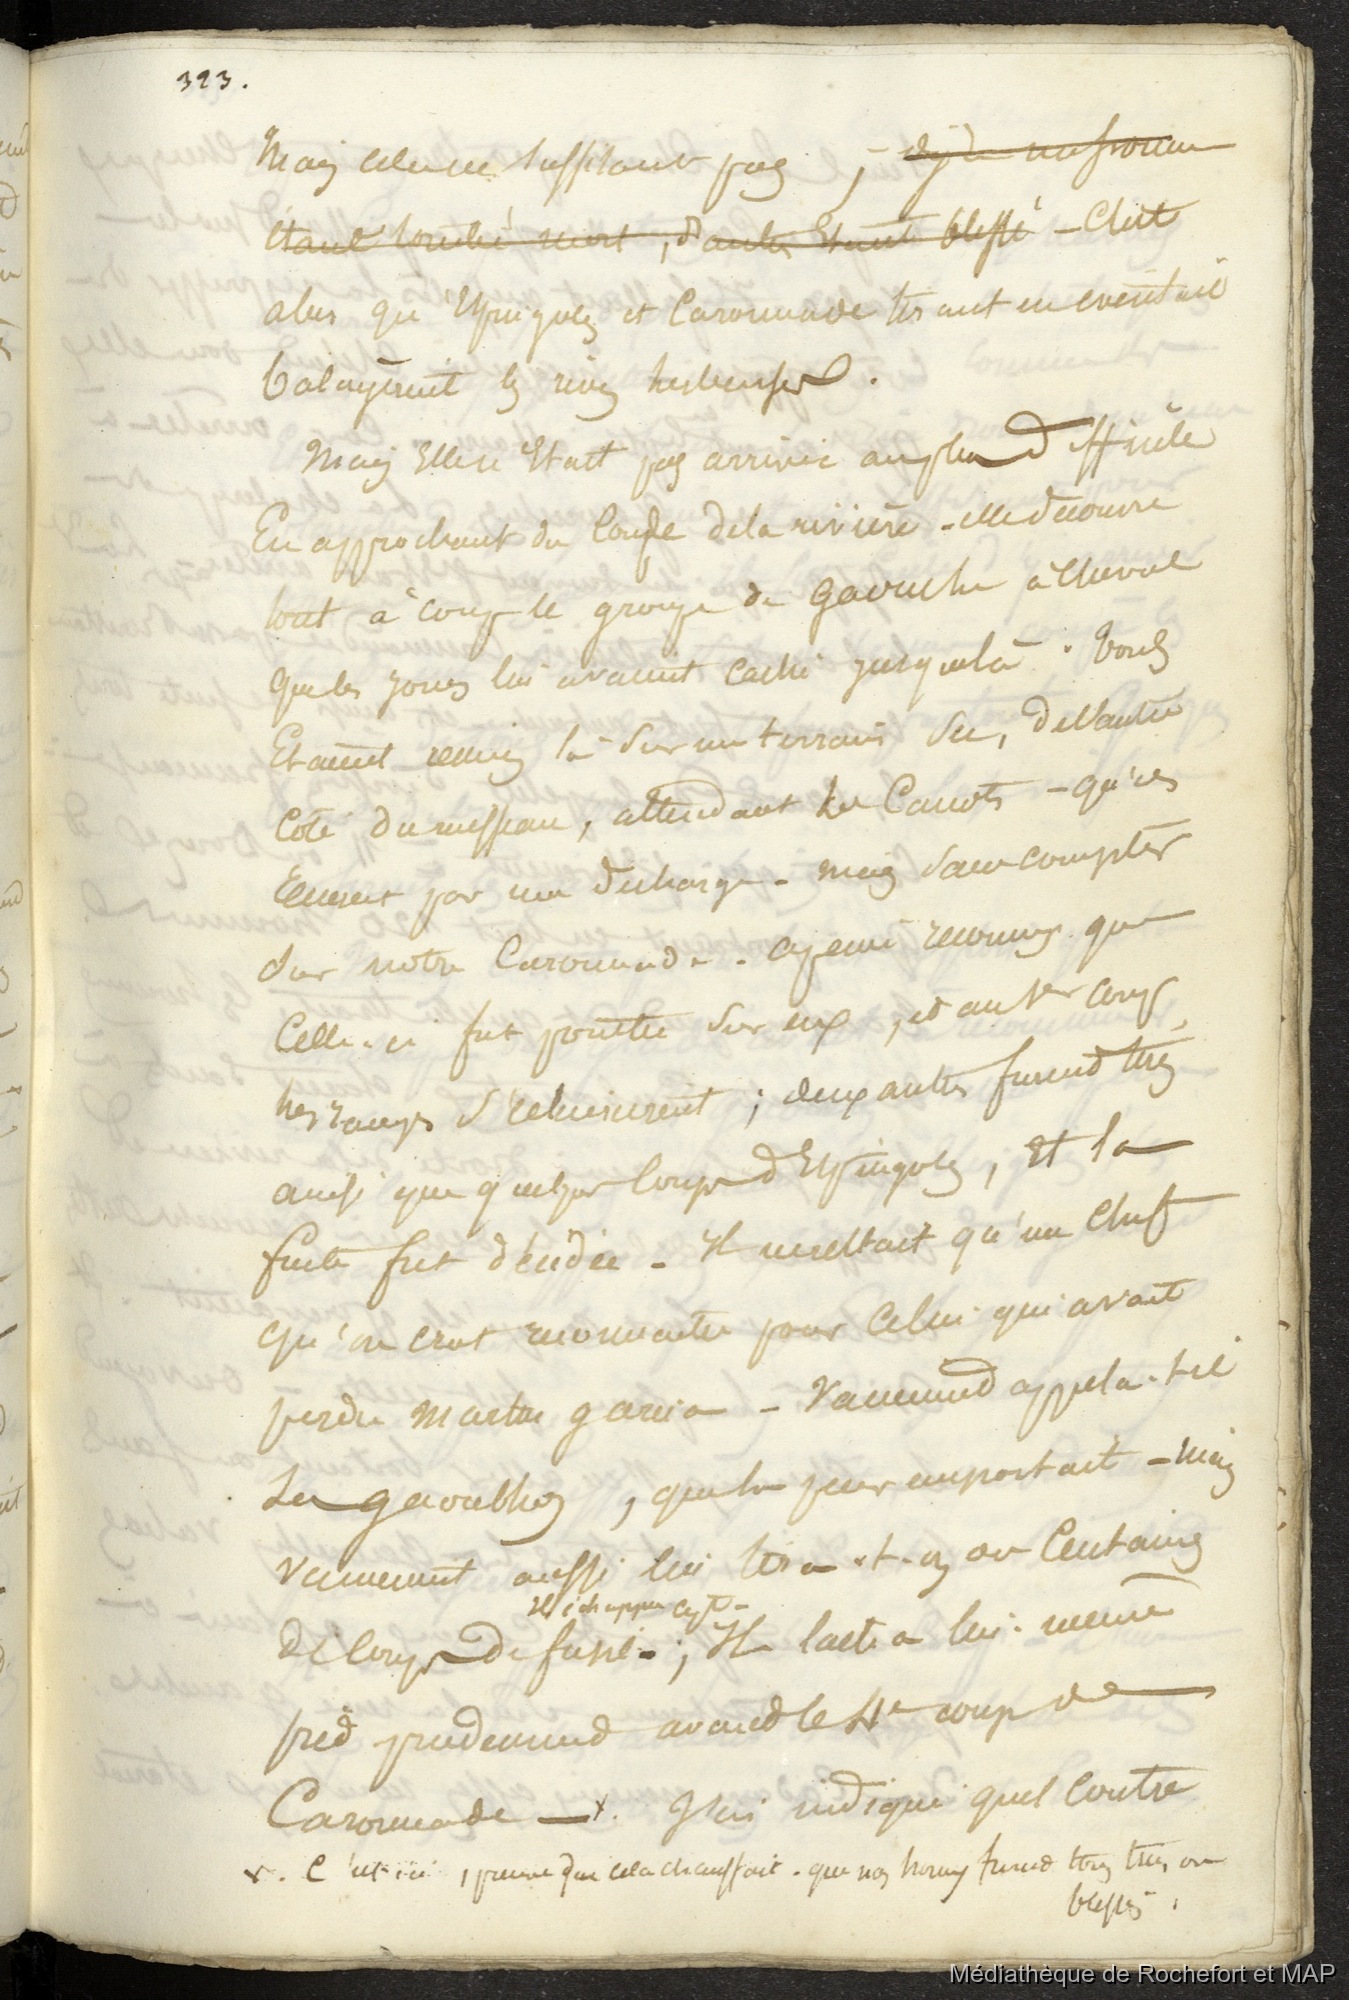 323.
Mais cela ne suffisant pas ; - déjà un homme
étant tombé mort, d'autres étant blessé - C'est
alors qu'Espingoles et Caronnade tirant en eventail
balayèrent les rives
Mais Elle n'était pas arrivée au plus difficile
En approchant du coude de la rivière - elle découvre
tout à coup le groupe de gaouchos à cheval
que les joncs lui avaient caché jusque là. Tous
Etaient réunis là sur un terrain sec, de l'autre
Coté du ruisseau, attendant les Canots - qu'ils
reçurent par une décharge - mais sans compter
sur notre Caronnade. apeine reconnus que
Celle-ci fut pointée sur eux, et au 1er coup
les rangs s'éclaircirent ; deux autres furent tirés
ainsi que quelques coups d'Espingoles, Et la
fuite fut décidée - Il ne restait qu'un Chef
qu'on crut reconnaitre pour Celui qui avait
perdu Martin garcia - Vainement appela-t-il
Les gaouchos, que la peur emportait - Mais
Vainement aussi lui tira-t-on une Centaine
de Coups de fusil - ; Il lacha lui-même
Il échappa
pied prudemment avant le 4e coup de
Caronnade —x. J'ai indiqué quel Contre
x. C'est ici, preuve que cela chauffait - que nos hommes furent tous tués ou
blessés.
Médiathèque de Rochefort et MAP